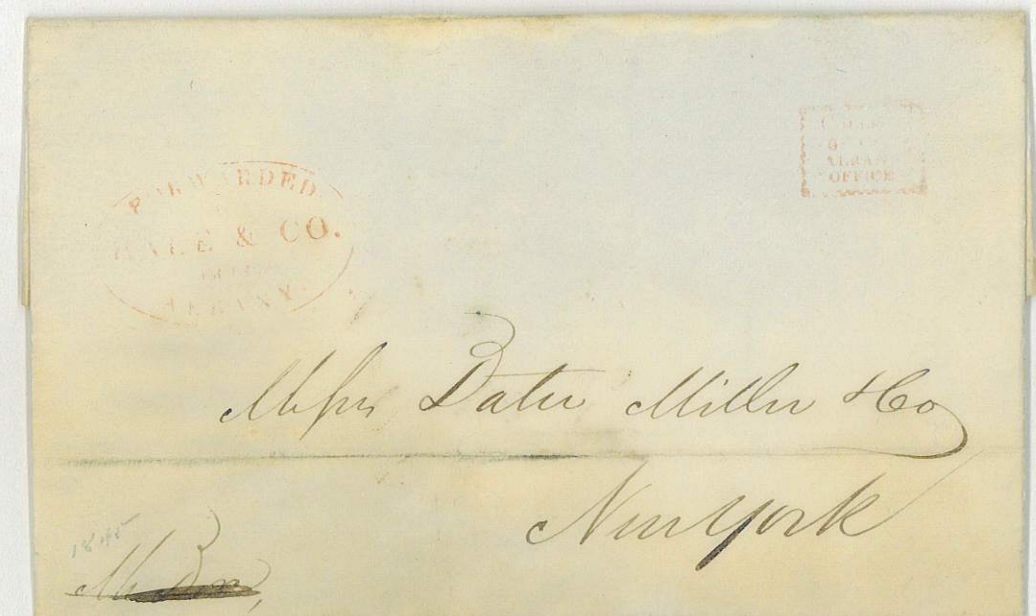 FORWARDED
HALE & CO.
ALBANY
ALBANY
OFFICE
Messrs Dater Miller & Co
New York
1845